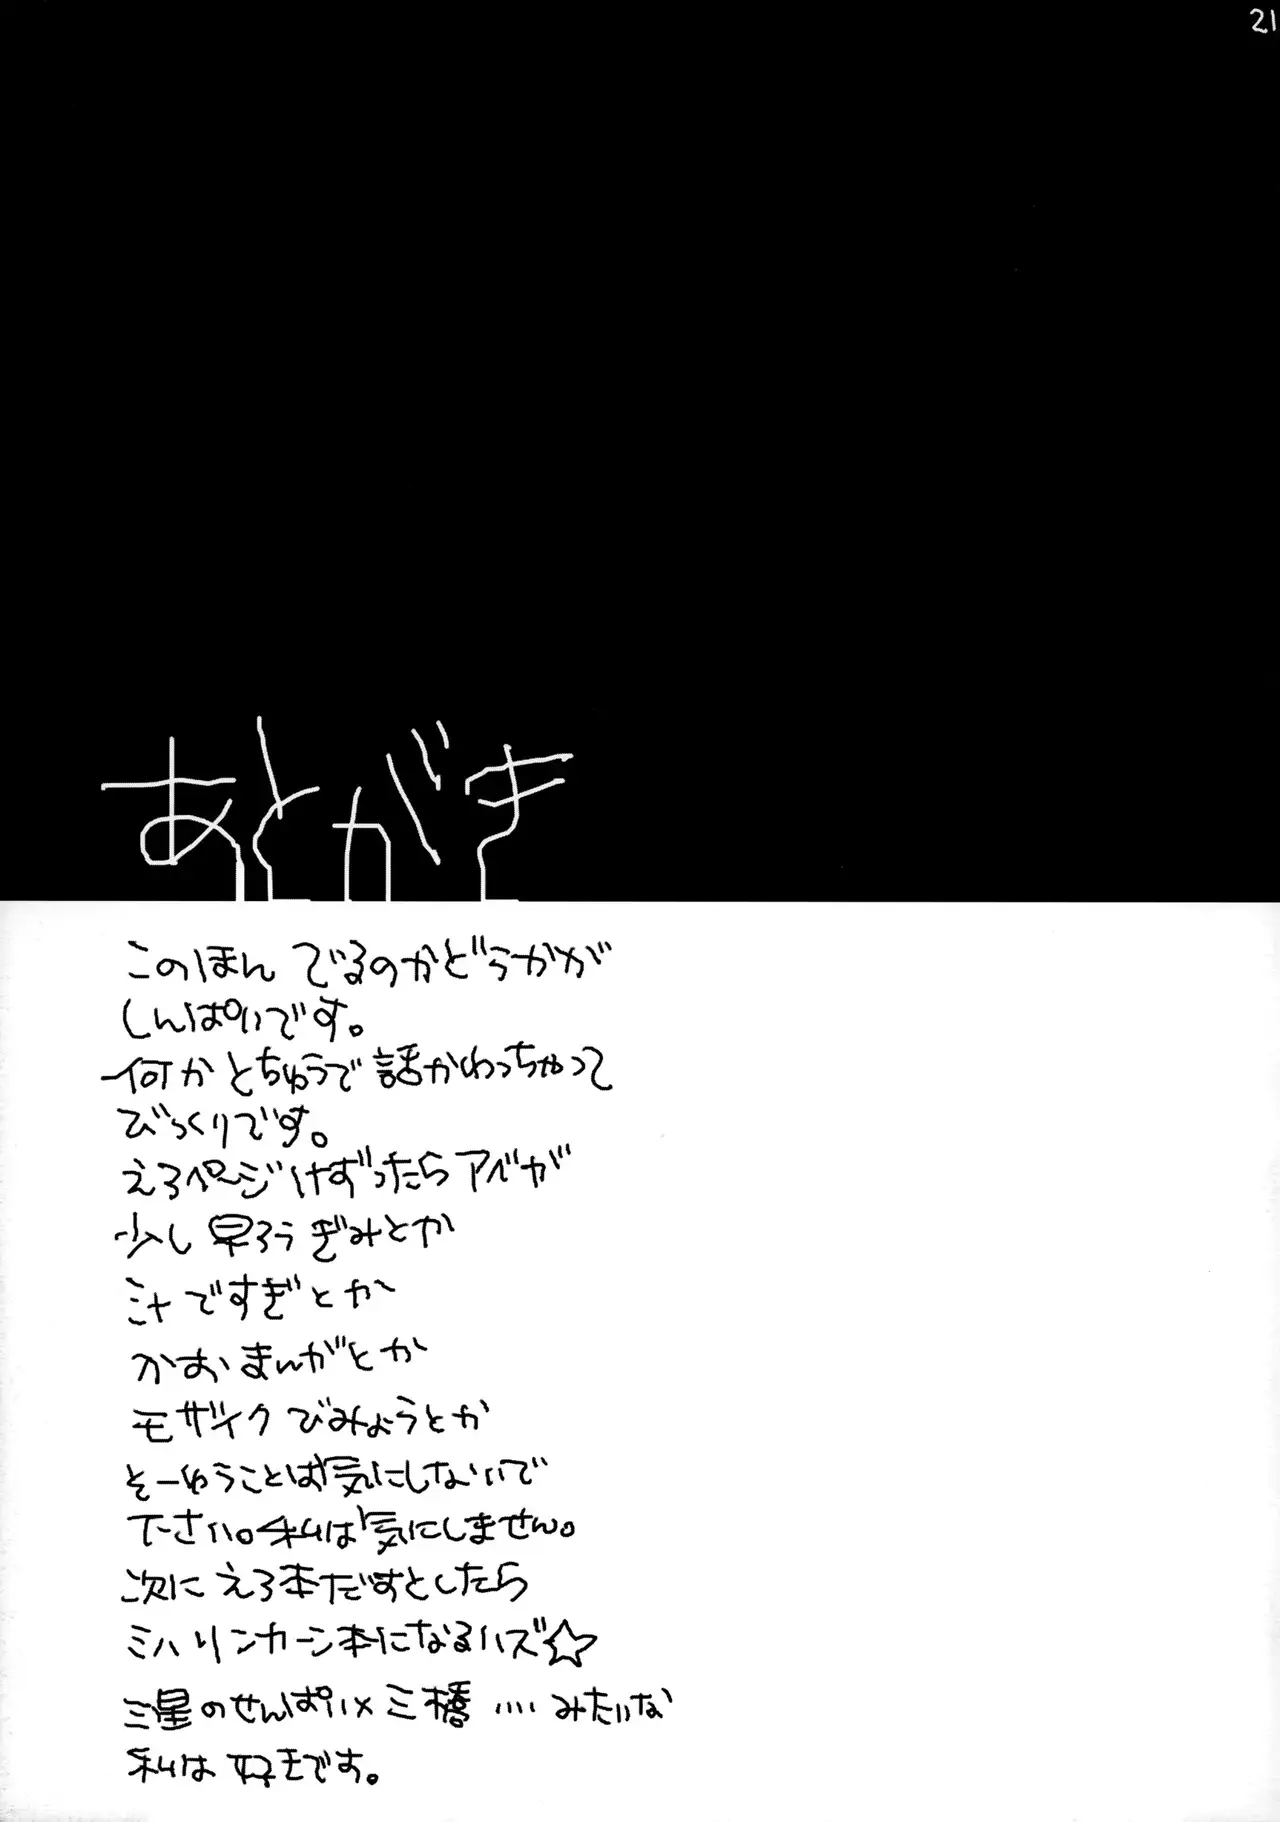 21
あとがき
このほん でるのかどうかが
しんぱいです。
何か とちゅうで 話かわっちゃって
びっくりです。
えろページ けずったら アベが
少し 早ろう ぎみとか
汁ですぎとか
かおまんがとか
モザイク びみょうとか
そーゆうことは気にしないで
下さい。私は気にしません。
次に えろ本だすとしたら
ミハリンカーン本になるハズ☆
三星のせんぱい×三橋 ‥‥ みたいな
私は 好きです。